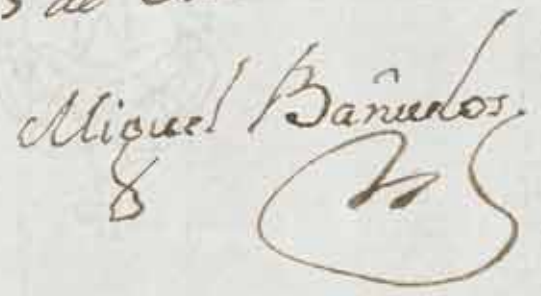 s de
Miguel Bañuelos